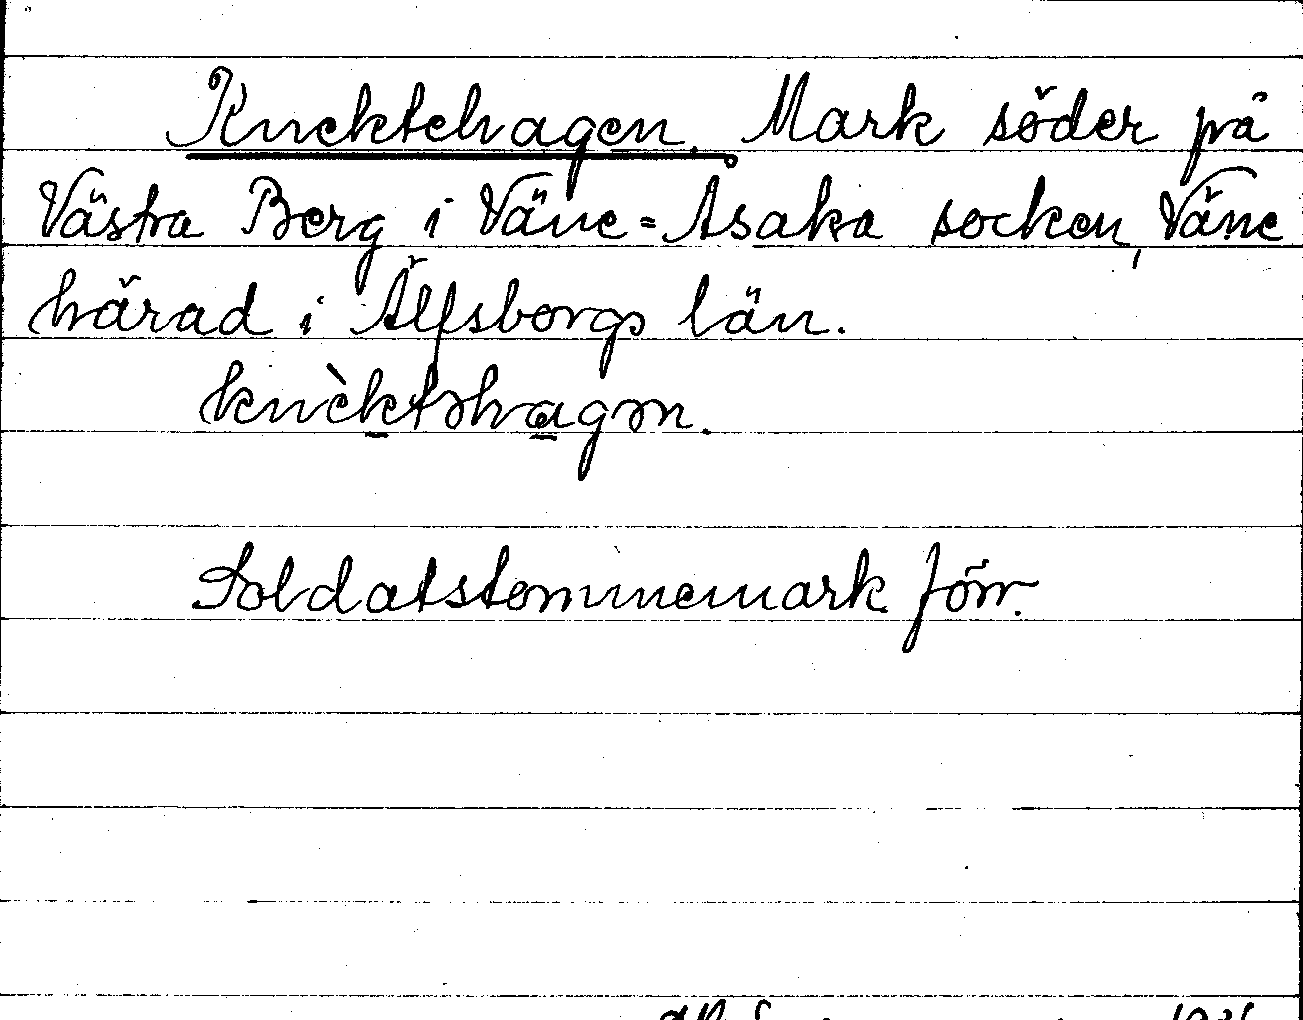 Knektehagen. Mark söder på
Västra Berg i Väne=Åsaka socken, Väne
härad i Älfsborgs län.
knèktəhagən.
Soldatstommemark förr.